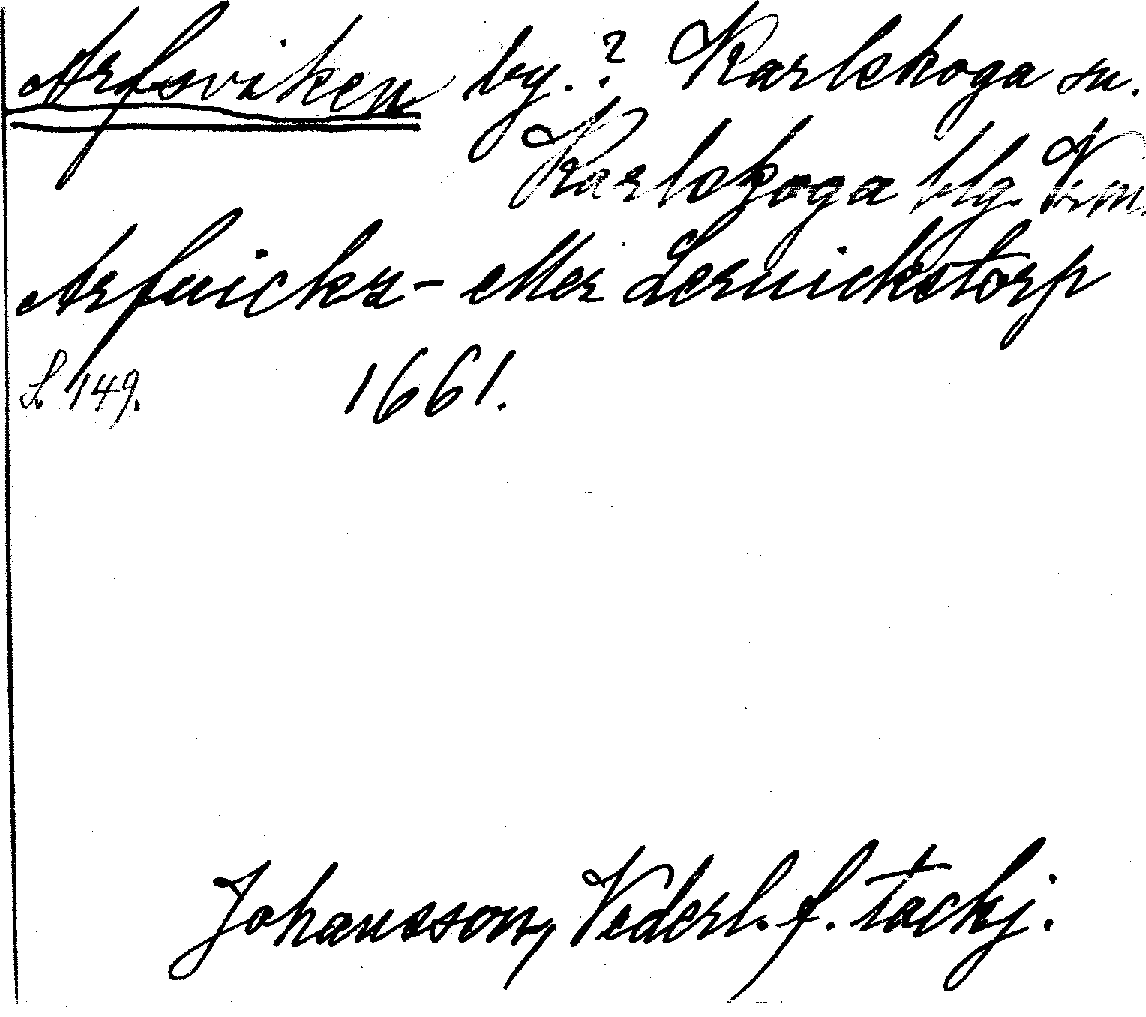 Arfsviken by.? Karlskoga sn.
Karlskoga blg. Vrm.
Arfuicks- eller Leruickstorp
S. 149. 1661.
Johansson, Vederl. f. tackj.